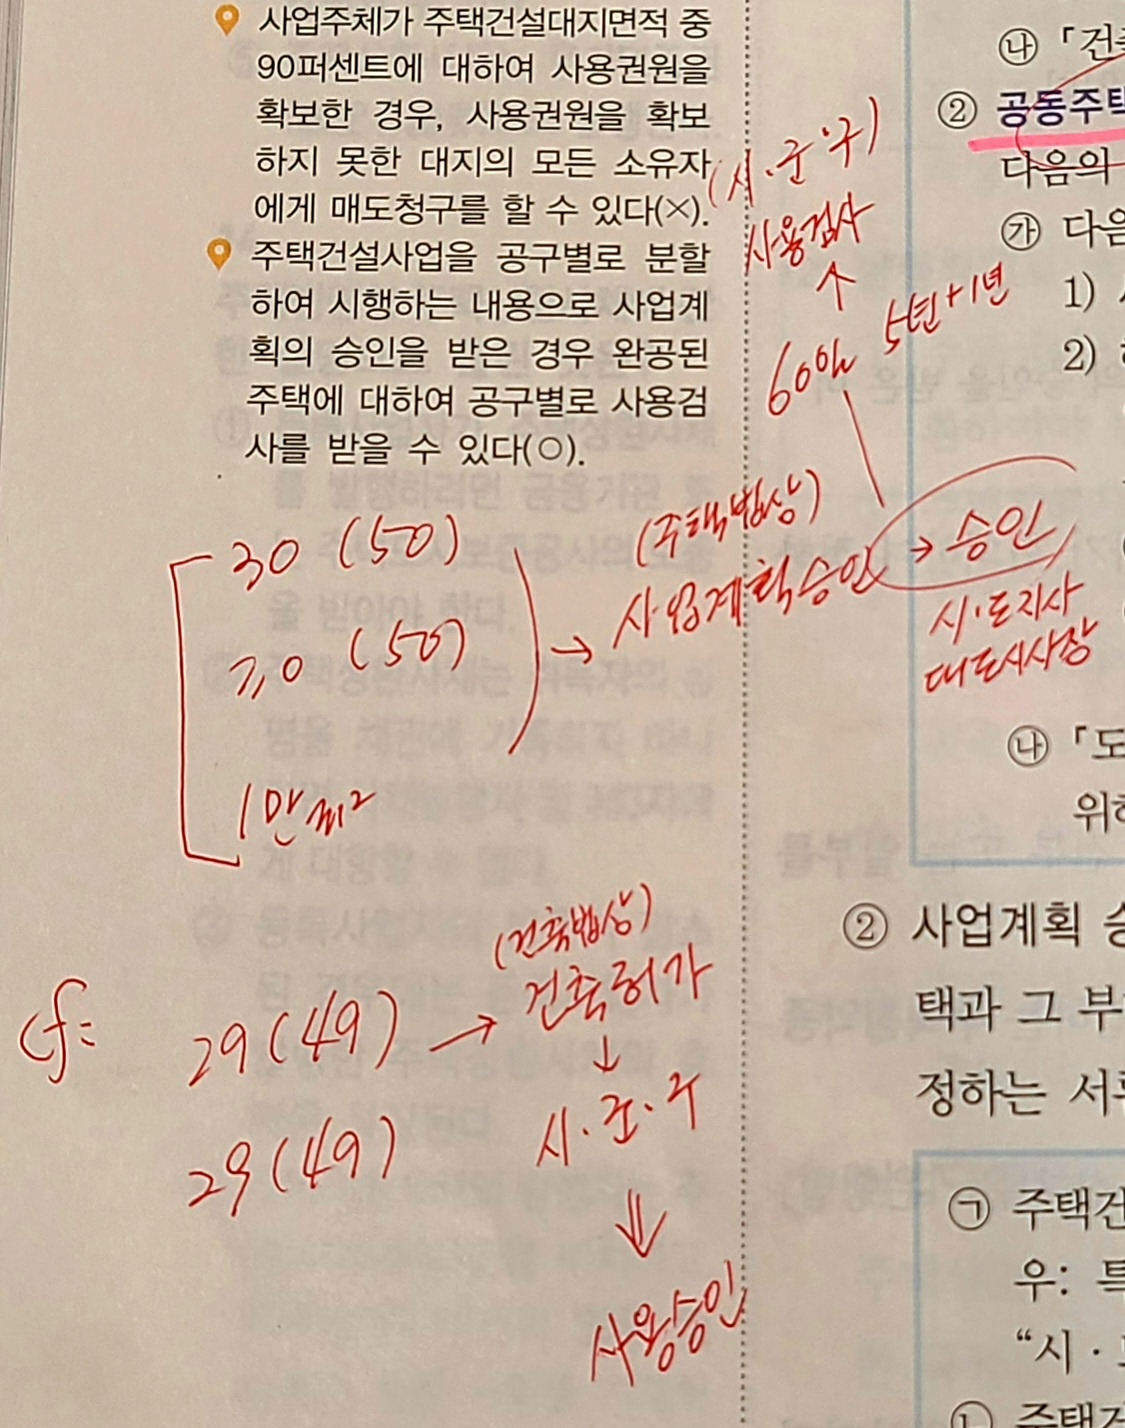 사업주체가 주택건설대지면적 중
90퍼센트에 대하여 사용권원을
확보한 경우, 사용권원을 확보
하지 못한 대지의 모든 소유자
에게 매도청구를 할 수 있다(×).
주택건설사업을 공구별로 분할
하여 시행하는 내용으로 사업계
획의 승인을 받은 경우 완공된
주택에 대하여 공구별로 사용검
사를 받을 수 있다(○).
(시·군·구)
사용검사
↑
60일 5년+1년
30 (50)
30 (50)
1만㎡
→ (주택법상)
사업계획승인 → 승인
시·도지사
대도시시장
cf:
29(49) → (건축법상)
건축허가
↓
29(49)
시·군·구
⇓
사용승인
㉯ 「건축
② 공동주택
다음의
㉮ 다음
1)
2)
㉯ 「도
위하
② 사업계획 승
택과 그 부
정하는 서류
㉠ 주택건
우: 특
“시·도
㉡ 주택건